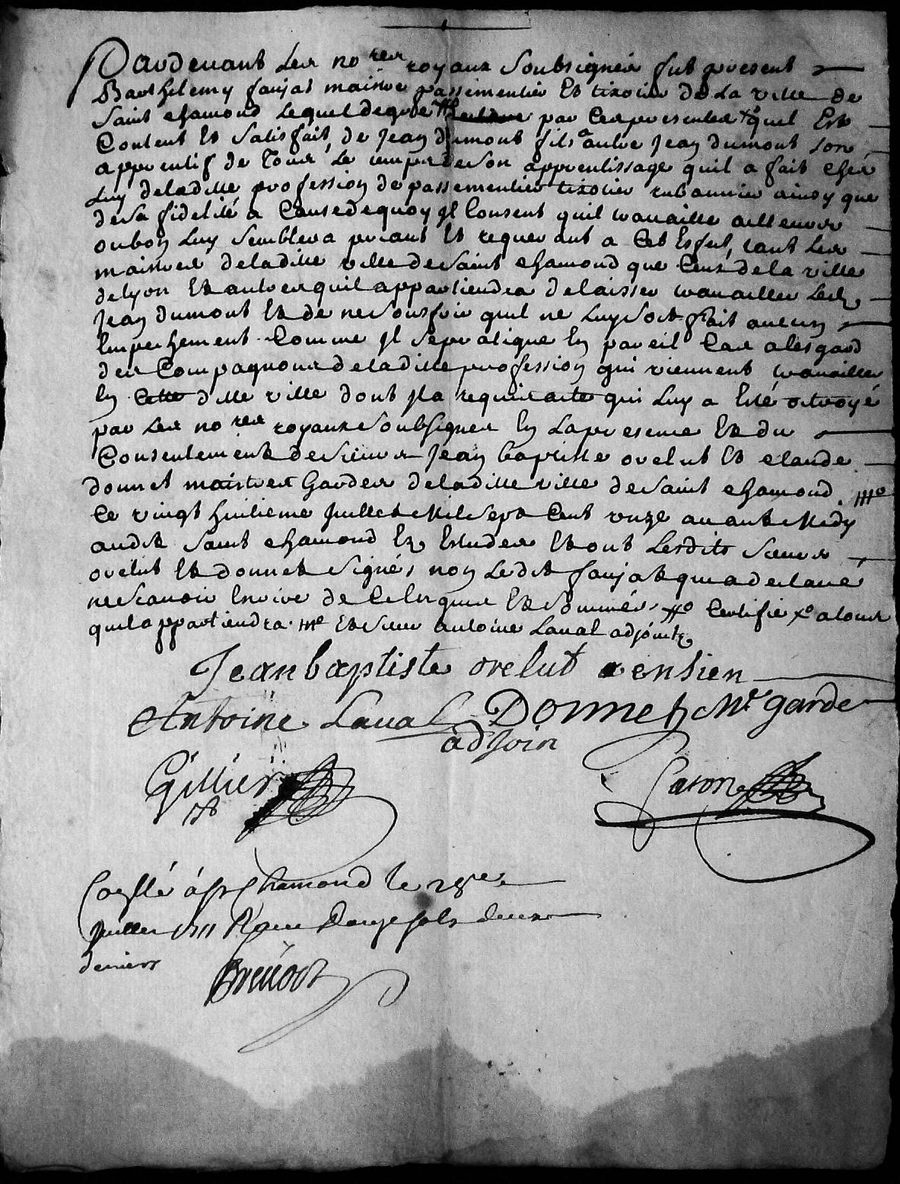 Pardevant Les no.res royaux soubsignés fut present
Barthelemy faujat maistre passementier Et tixotier de La ville de
Saint chamond Lequel de gré par Ces presentes quil Est
Content Et Satisfait, de Jean dumont fils a autre Jean dumont Son
apprentif de Tout Le temps de son apprentissage quil a fait chez
Luy de laditte profession de passementier tixotier rubannier ainsy que
de sa fidelité a Cause de quoy Il Consent quil travaille ailleurs
ou bon Luy Semblera priant Et requerant a Cet Esfet, tant Les
maistres de laditte ville de Saint chamond que Ceux de la ville
de lyon Et autres quil appartiendra de laisser travailler Led.
Jean dumont Et de ne soufrir quil ne Luy soit fait aucun
Empechement Comme Il se pratique En pareil Cas a lesgard
des Compagnons de laditte profession qui viennent travailler
En ditte ville dont Il a requis acte qui Luy a Esté octroyé
par Les no.res royaux Soubsignes En La presence Et du
Consentement de sieurs Jean baptiste orelut Et claude
donnet maistres Gardes de laditte ville de Saint chamond
Ce vingt huitieme Juillet Mil Sept Cent unze avant Midy
audit Saint chamond Ez Estudes Et ont Lesdits Sieurs
orelut Et donnet Signés non Ledit faujat qui a declaré
ne Scavoir Escrire de Ce Enquis Et Sommés. Certifie a tous
quil appartiendra. Et sieur antoine Laval adjoint
Jean baptiste orelut
Antoine Laval Donnet Mre garde
adjoin
Gillier
Paron
Conllé à St Chamond le 28me
Juillet 1711 Reçu Douze sols deux
deniers